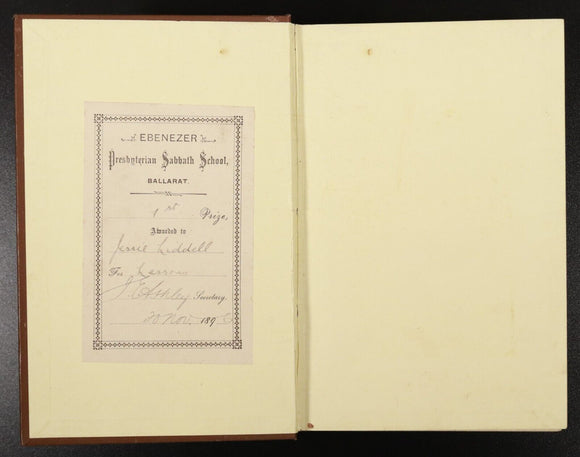 EBENEZER
Presbyterian Sabbath School,
BALLARAT.
1st Prize,
Awarded to
Jessie Liddell
For Lessons
Secretary.
20 Nov. 189